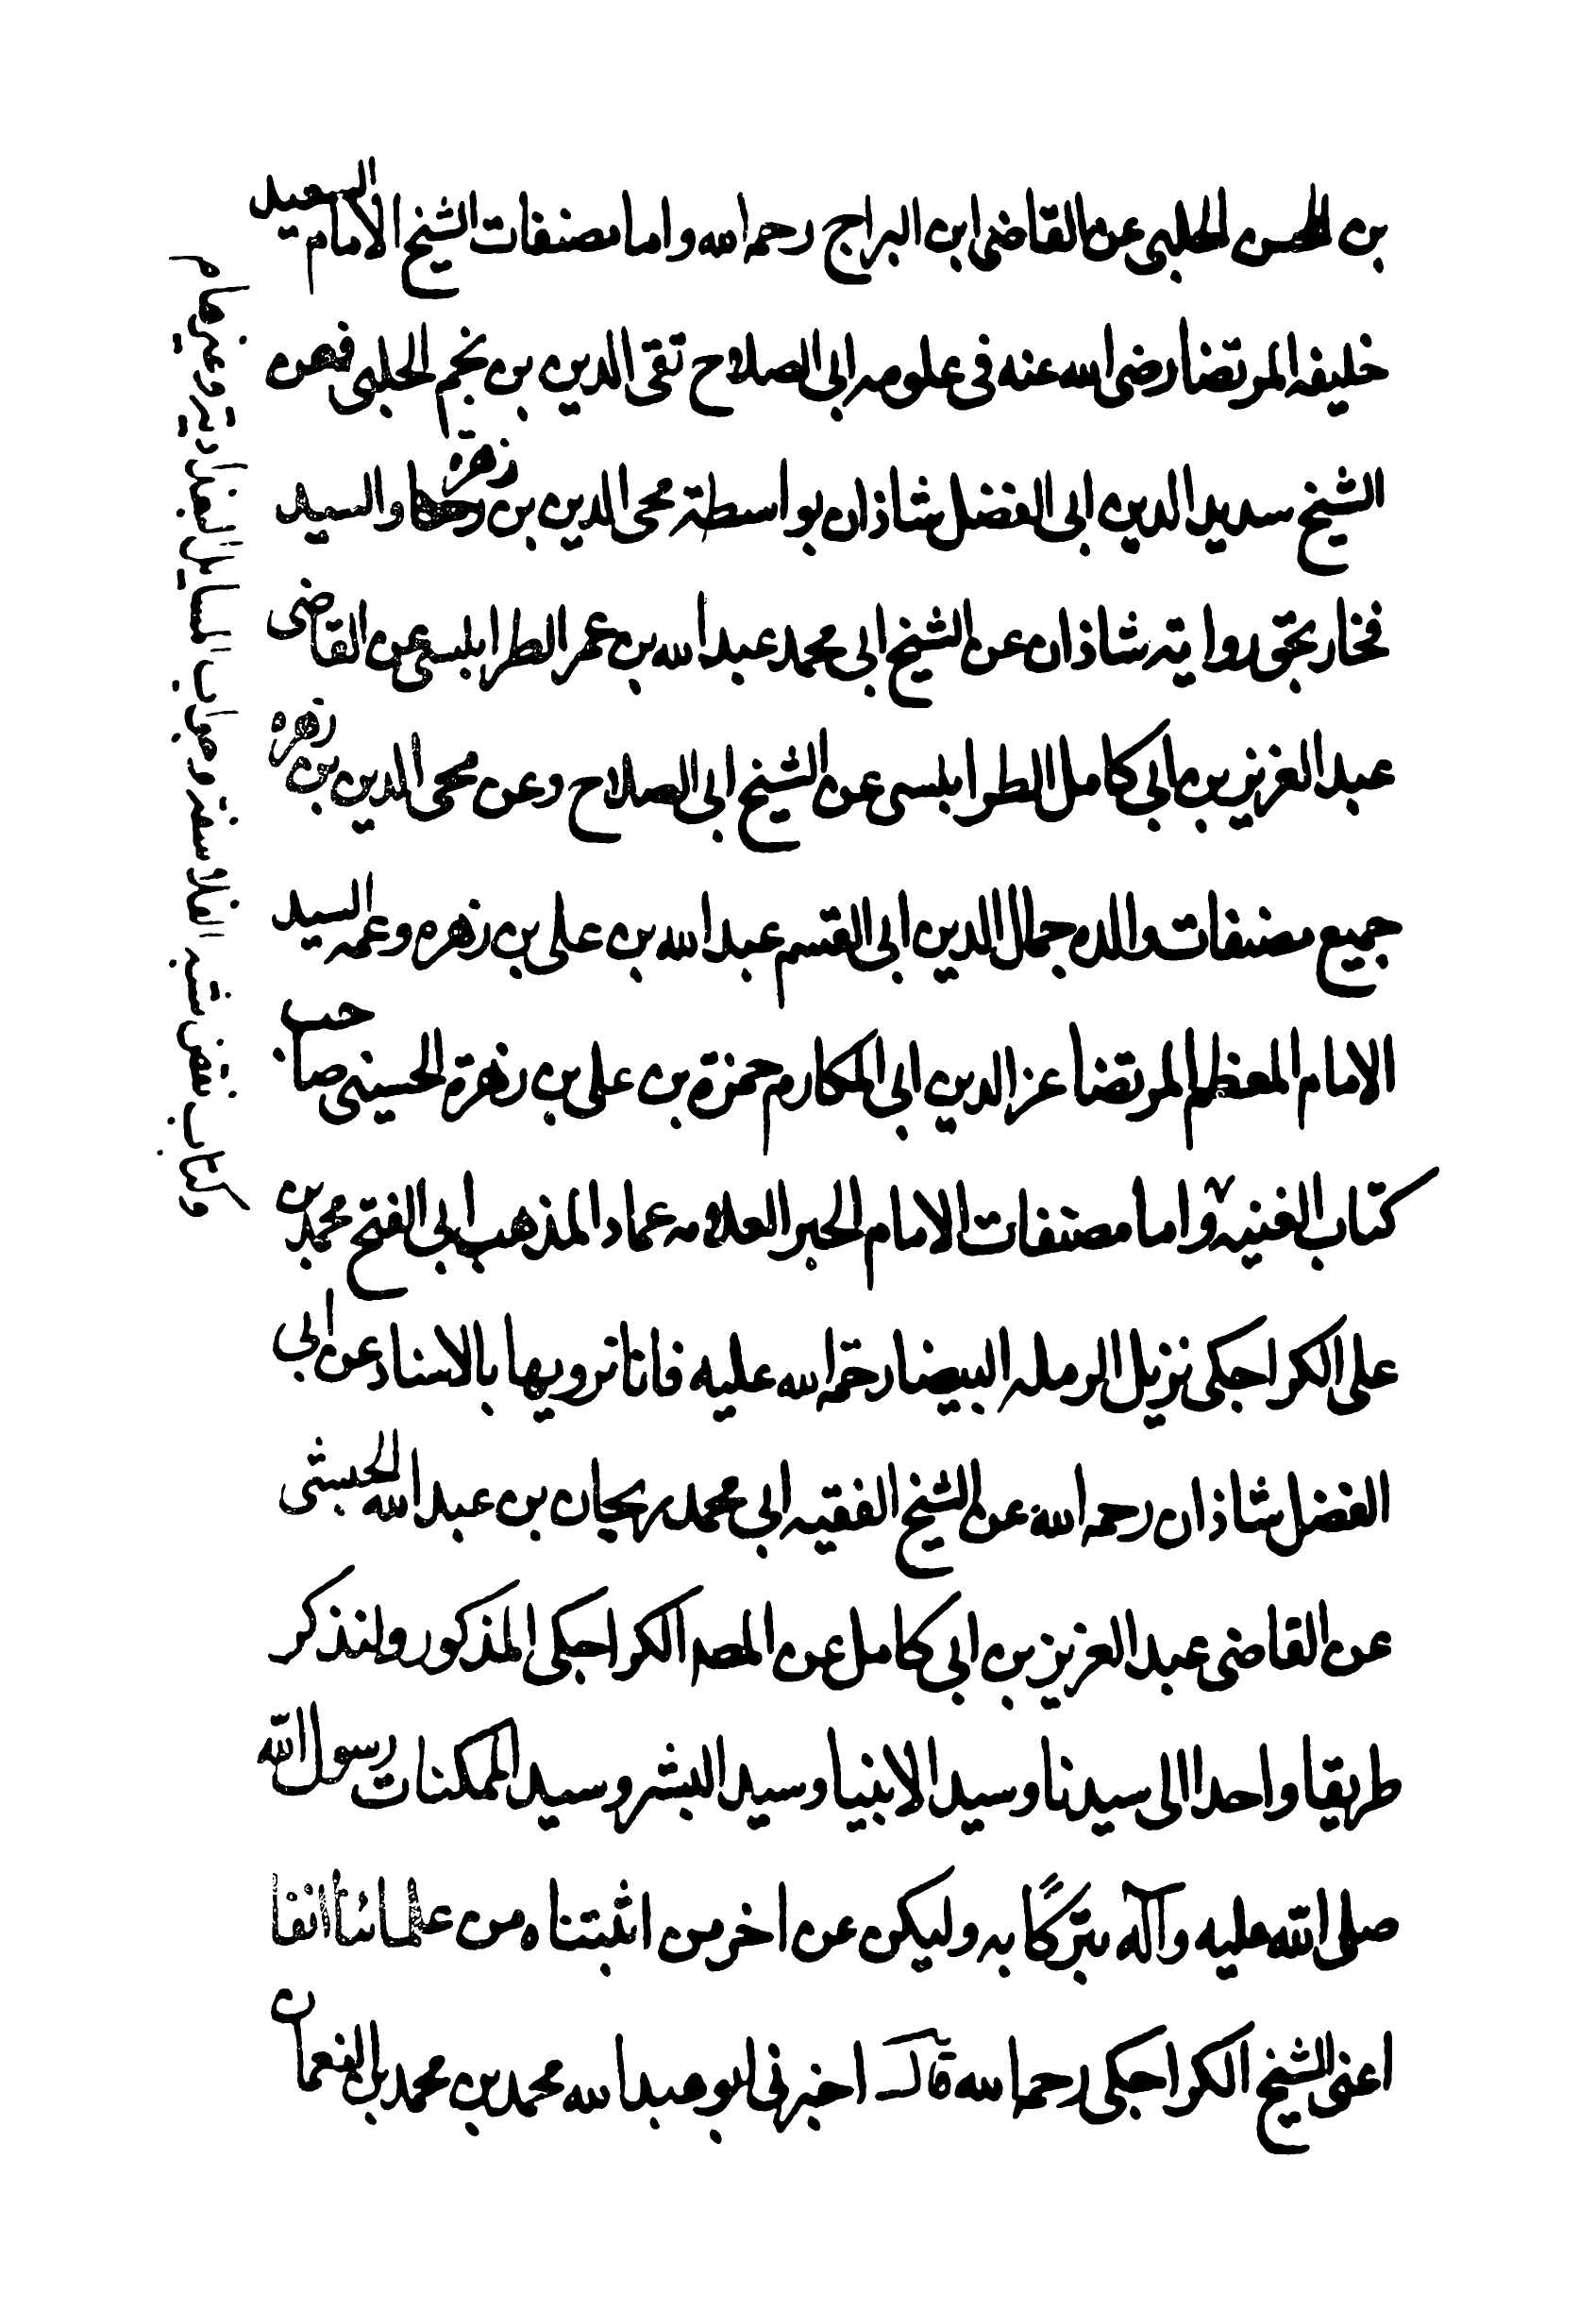 بن الحسن الحلبى عن القاضى ابن البراج رحمه الله واما مصنفات الشيخ الامام السعيد
خليفه المرتضا رضى الله عنه فى علومه ابى الصلاح تقى الدين بن نجم الحلبى فعن
الشيخ سديد الدين ابى الفضل شاذان بواسطة محى الدين بن زهرة والسيد
فخار بحق روايته شاذان عن الشيخ ابى محمد عبد الله بن عمر الطرابلسى عن القاضى
عبد العزيز بن ابي كامل الطرابلسى عن الشيخ ابى الصلاح وعن محى الدين بن زهره
جميع مصنفات والده جمال الدين ابى القسم عبد الله بن على بن زهره وعمه السيد
الامام المعظم المرتضا عز الدين ابى المكارم حمزة بن على بن زهرة الحسينى صاحب
كتاب الغنيه واما مصنفات الامام الحبر العلامه عماد المذهب ابى الفتح محمد بن
على الكراجكى نزيل الرمله البيضا رحمة الله عليه فانا نرويها بالاسناد عن ابي
الفضل شاذان رحمه الله عن الشيخ الفقيه ابي محمد ريحان بن عبد الله الحبشى
عن القاضى عبد العزيز بن ابي كامل عن المصه الكراجكى المذكور ولنذكر
طريقا واحدا الى سيدنا وسيد الانبيا وسيد البشر وسيد الممكنات رسول الله
صلى الله عليه وآله تبركًا به وليكن عن اخر من اثبتناه من علمائنا انفا
اعنى الشيخ الكراجكى رحمه الله قال اخبرنى ابو عبد الله محمد بن محمد بن النعمان
وكتاب نقض شبه الفلاسفة وجواب المسايل البغدادية وغيرهم